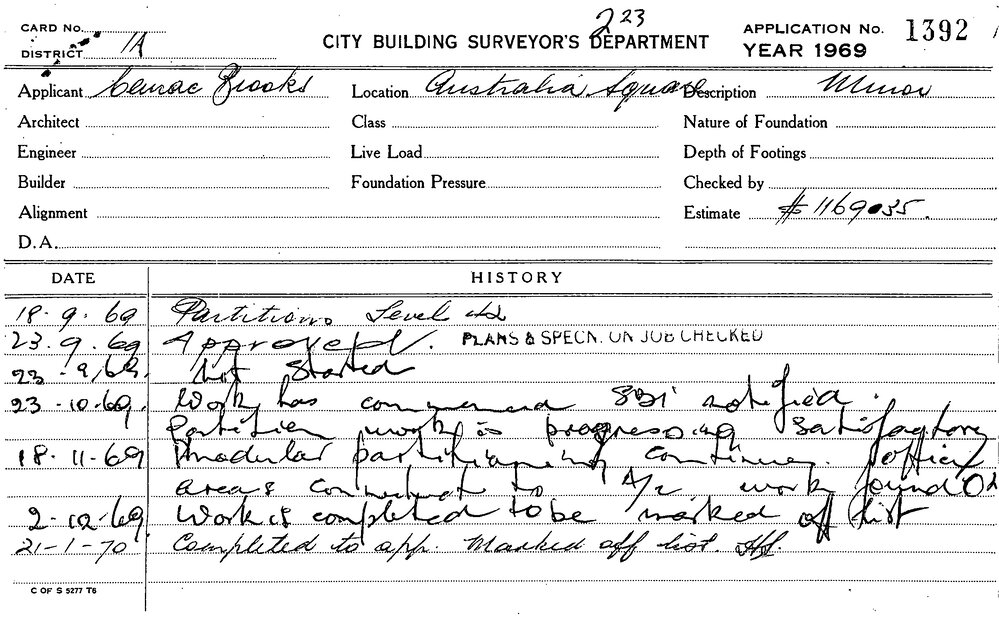 223
CARD No.
DISTRICT 1A
CITY BUILDING SURVEYOR'S DEPARTMENT
APPLICATION No. 1392
YEAR 1969
Applicant Brooks Location Australia Square Description Minor
Architect Class Nature of Foundation
Engineer Live Load Depth of Footings
Builder Foundation Pressure Checked by
Alignment Estimate $1169.35.
D.A.
DATE HISTORY
18.9.69 Partitions Level 42
23.9.69 Approved. PLANS & SPECN. ON JOB CHECKED
23-9.69. Not Started
23.10.69. Work has commenced notified.
Partition work is progressing satisfactory
18.11.69 modular partitioning continues. office
areas work found
2.12.69 Work is completed to be marked off list
21-1-70 Completed to app. Marked off list.
C OF S 5277 T6